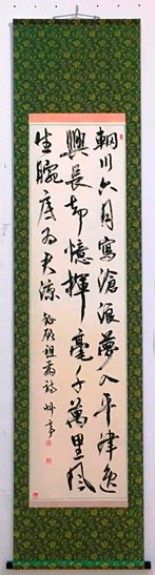 輞川六月寫滄浪夢入平津逸
興長却憶揮毫千萬里風
生腕底為天涼